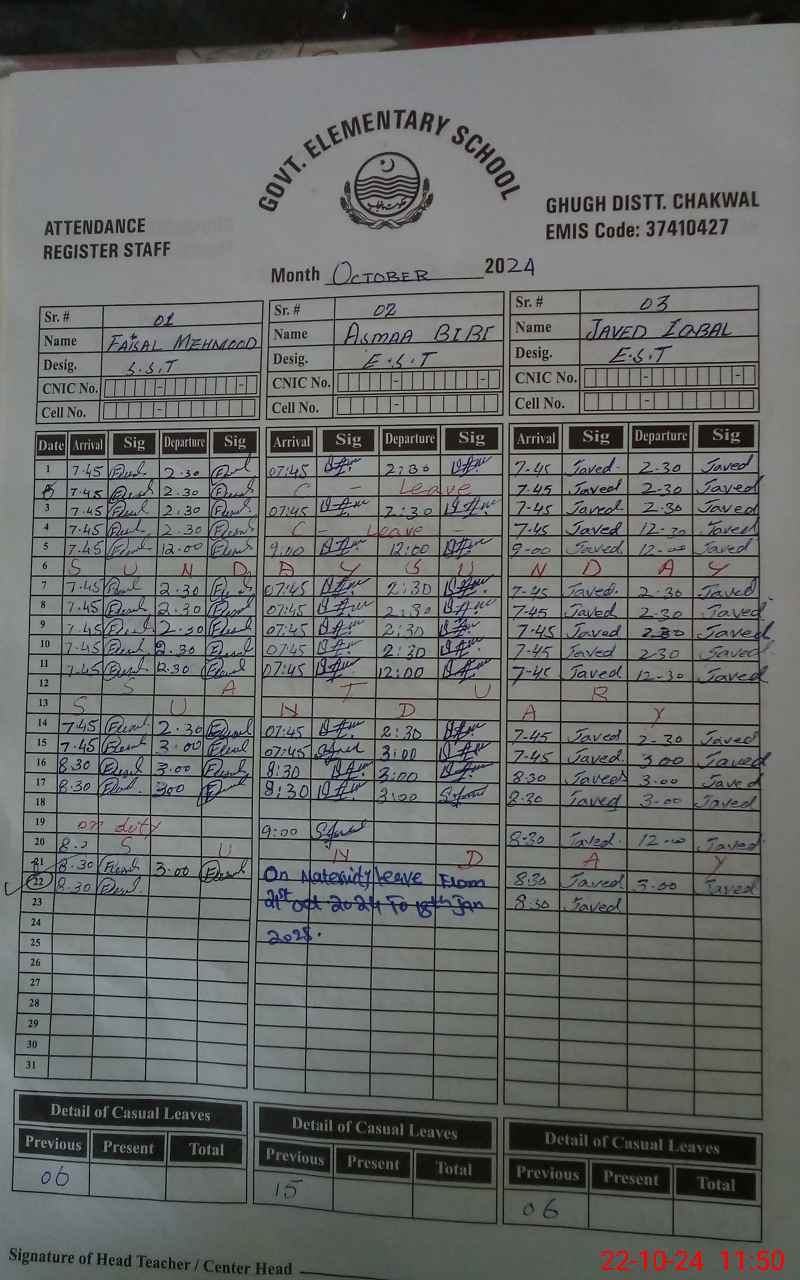 GOVT. ELEMENTARY SCHOOL
GHUGH DISTT. CHAKWAL
EMIS Code: 37410427
ATTENDANCE
REGISTER STAFF
Month OCTOBER 2024
Sr. # 01 Sr. # 02 Sr. # 03
Name FAISAL MEHMOOD Name ASMAA BIBI Name JAVED IQBAL
Desig. S.S.T Desig. E.S.T Desig. E.S.T
CNIC No. CNIC No. CNIC No.
Cell No. Cell No. Cell No.
Date Arrival Sig Departure Sig Arrival Sig Departure Sig Arrival Sig Departure Sig
1 7.45 2.30 07:45 2:30 7-45 Javed 2-30 Javed
7.45 2.30 C - Leave 7.45 Javed 2-30 Javed
3 7.45 2.30 07:45 2:30 7-45 Javed 2-30 Javed
4 7.45 2.30 C - Leave - 7-45 Javed 12-30 Javed
5 7.45 12.00 9:00 12:00 9-00 Javed 12-00 Javed
6 S U N D A Y S U N D A Y
7 7.45 2.30 07:45 2:30 7-45 Javed 2-30 Javed
8 7.45 2.30 07:45 2:30 7-45 Javed 2-30 Javed
9 7.45 2.30 07:45 2:30 7-45 Javed 2-30 Javed
10 7.45 2.30 07:45 2:30 7-45 Javed 2-30 Javed
11 7.45 12.30 07:45 12:00 7-45 Javed 12-30 Javed
12 S A T U R
13 S U N D A Y
14 7.45 2.30 07:45 2:30 7-45 Javed 2-30 Javed
15 7.45 3.00 07:45 3:00 7-45 Javed 3.00 Javed
16 8.30 3.00 8:30 3:00 8.30 Javed 3-00 Javed
17 8.30 300 8:30 3:00 8-30 Javed 3-00 Javed
18
19 on duty 9:00 8-30 Javed 12-00 Javed
20 S U N D A Y
21 8.30 3.00 On Maternity leave From 8.30 Javed 3-00 Javed
22 8.30 21st oct 2024 To 18th Jan 8.30 Javed
23
24 2025.
25
26
27
28
29
30
31
Detail of Casual Leaves Detail of Casual Leaves Detail of Casual Leaves
Previous Present Total Previous Present Total Previous Present Total
06 15 06
Signature of Head Teacher / Center Head
22-10-24 11:50